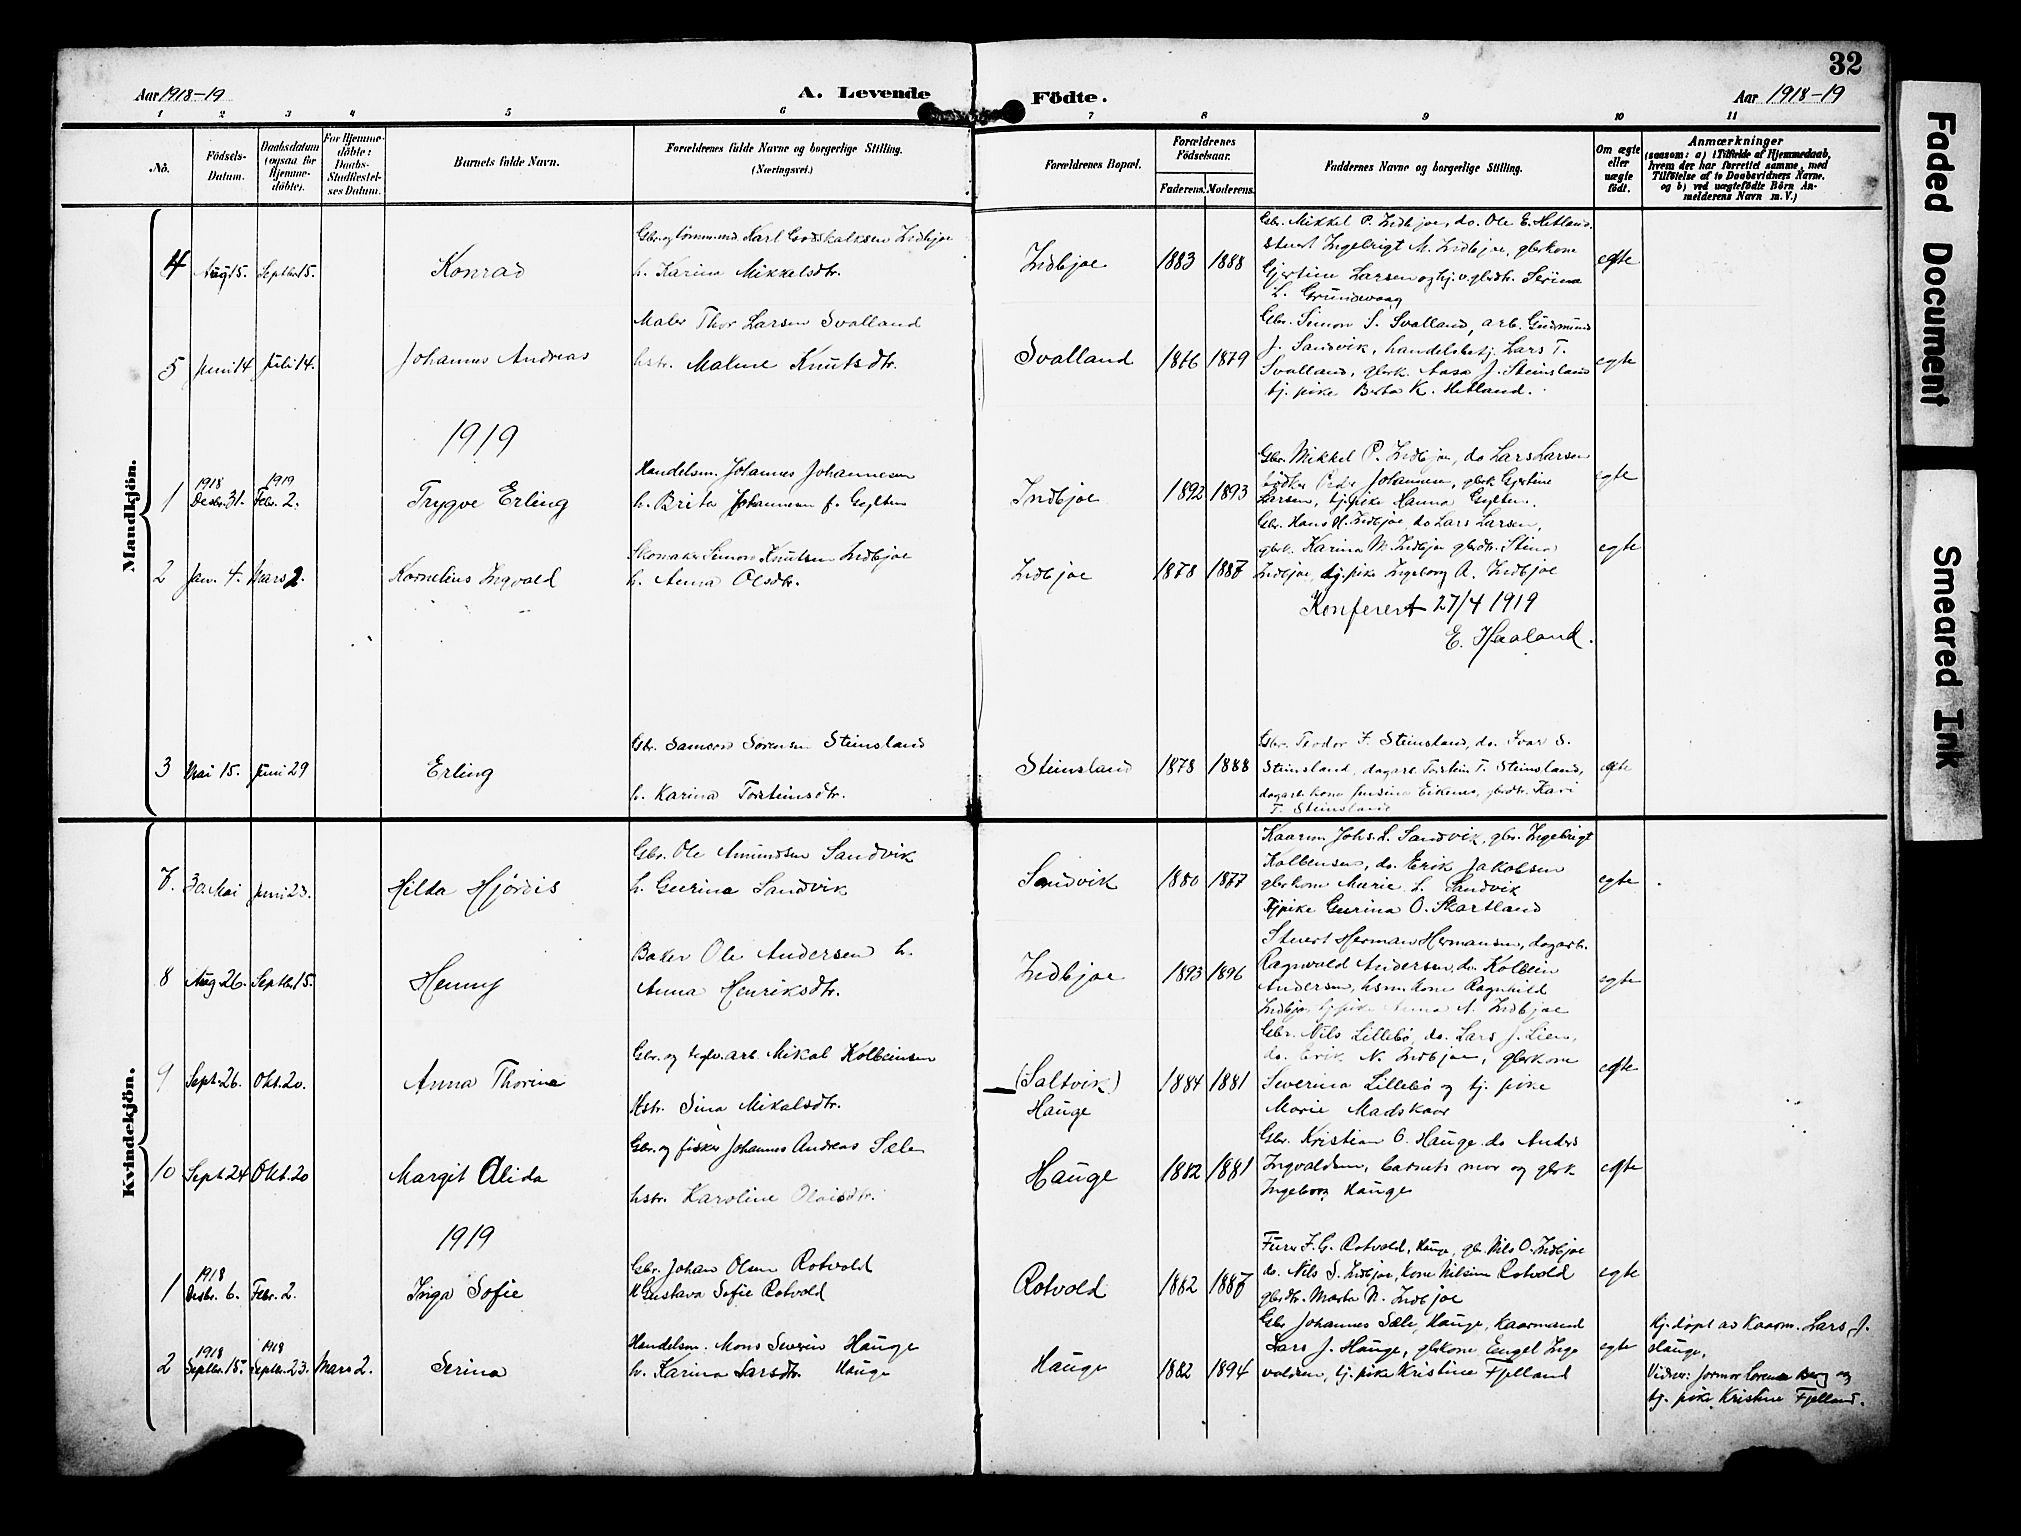 32
Aar 1918-19
A. Levende
Födte.
Aar 1918-19
1 2 3 4 5 6 7 8 9 10 11
No.
Födsels-Datum.
Daabsdatum (ogsaa for Hjemme-döbte).
For Hjemme-döbte: Daabs-Stadfæstel-ses Datum.
Barnets fulde Navn.
Forældrenes fulde Navne og borgerlige Stilling. (Næringsvei.)
Forældrenes Bopæl.
Forældrenes Födselsaar.
Faderens. Moderens.
Faddernes Navne og borgerlige Stilling.
Om ægte eller uægte födt.
Anmærkninger
(saasom: a) i Tilfælde af Hjemmedaab,
hvem der har forrettet samme, med
Tilföielse af to Daabsvidners Navne,
og b) ved uægtefödte Börn An-
melderens Navn m. V.)
Mandkjön.
4 Aug 15. Septbr 15. Konrad
Gbr. og tömmermd. Karl Godskalksen Indbjoe
h. Karina Mikkalsdtr.
Indbjoe 1883 1888
Gbr. Mikkel P. Indbjoe, do. Ole E. Hetland.
Stuert Ingebrigt M. Indbjoe, gbrkone
Gjertine Larsen og tj. v. gbrdtr. Serina
L. Grundevaag
egte
5 Juni 14 Juli 14. Johannes Andreas
Maler Thor Larsen Svalland
hstr. Malene Knutsdtr.
Svalland 1876 1879
Gbr. Simon S. Svalland, arb. Gudmund
J. Sandvik, handelsbetj. Lars T.
Svalland, gbrk. Aasa J. Steinsland
tj. pike Berta K. Hetland.
egte
1919
1 1918 Desbr. 31. 1919 Febr. 2. Trygve Erling
Handelsm. Johannes Johannesen
h. Brita Johannesen f. Gylten
Indbjoe 1892 1893
Gbr. Mikkel P. Indbjoe, do Lars Larsen
bödker Peder Johannesen, gbrk Gjertine
Larsen, tj. pike Hanna Gylten.
egte
2 Jan. 4. Mars 2. Kornelius Ingvald
Skomaker Simon Knutsen Indbjoe
h. Anna Olsdtr.
Indbjoe 1878 1887
Gbr. Hans H. Indbjoe, do Lars Larsen,
gbrk. Karina M. Indbjoe gbrdtr. Stina
Indbjoe, tj. pike Ingeborg A. Indbjoe
egte
Konferert 27/4 1919
E. Haaland.
3 Mai 15. Juni 29 Erling
Gbr. Samson Sörensen Steinsland
h. Karina Torsteinsdtr.
Steinsland 1878 1888
Gbr. Teodor F. Steinsland, do. Ivar S.
Steinsland, dagarb. Torstein T. Steinsland,
dagarb. kone Jensine Eikenes, gbrdtr. Kari
T. Steinsland
egte
Kvindekjön.
7. 30 Mai Juni 23. Hilda Hjördis
Gbr. Ole Amundsen Sandvik
h. Gurina Sandvik
Sandvik 1880 1877
Kaarm. Johs. L. Sandvik, gbr. Ingebrigt
Kolbensen, do. Erik Jakobsen
gbrkone Marie L. Sandvik
Tj pike Gurina O. Skartland
egte
8 Aug 26. Septbr 15. Henny
Baker Ole Andersen h.
Anna Henriksdtr.
Indbjoe 1893 1896
Stuert Herman Hermansen, dagarb.
Ragnvald Andersen, do. Kolbein
Andersen, hsmkone Ragnhild
Indbjoe, tj pike Anna A. Indbjoe
egte
9 Sept. 26. Okt. 20. Anna Thorine
Gbr. og teglv. arb. Mikal Kolbeinsen
Hstr. Sina Mikalsdtr.
(Saltvik)
Hauge
1884 1881
Gbr. Nils Lillebö, do. Lars J. Lien,
do. Erik N. Indbjoe, gbrkone
Severina Lillebö og tj. pike
Marie Madskaar
egte
10 Sept 24 Okt. 20 Margit Alida
Gbr. og fisker Johannes Andreas Sæle
hstr. Karoline Olaisdtr.
Hauge 1882 1881
Gbr. Kristian O. Hauge, do Anders
Ingvaldsen, barnets mor og gbrk
Ingeborg Hauge
egte
1919
1 1918 Desbr. 6. Febr. 2. Inga Sofie
Gbr. Johan Olsen Rotvold
H Gustava Sofie Rotvold
Rotvold 1882 1887
Furer F. G. Rotvold, Hauge, gbr. Nils O. Indbjoe
do. Nils S. Indbjoe, kone Nilsine Rotvold
gbrdtr. Marta N. Indbjoe
egte
2 1918 Septbr. 15. 1918 Septbr. 23. Mars 2. Serina
Handelsm. Mons Severin Hauge
h. Karina Larsdtr. Hauge
Hauge 1882 1894
Gbr Johannes Sæle, Hauge, Kaarmand
Lars J. Hauge, gbrkone Engel Ing-
valdsen, tj. pike Kristine Fjelland
egte
Hj. döpt av Kaarm. Lars J.
Hauge,
Vidner: Jormor Lorensa Berg og
tj. pike Kristine Fjelland.
Faded Document
Smeared Ink